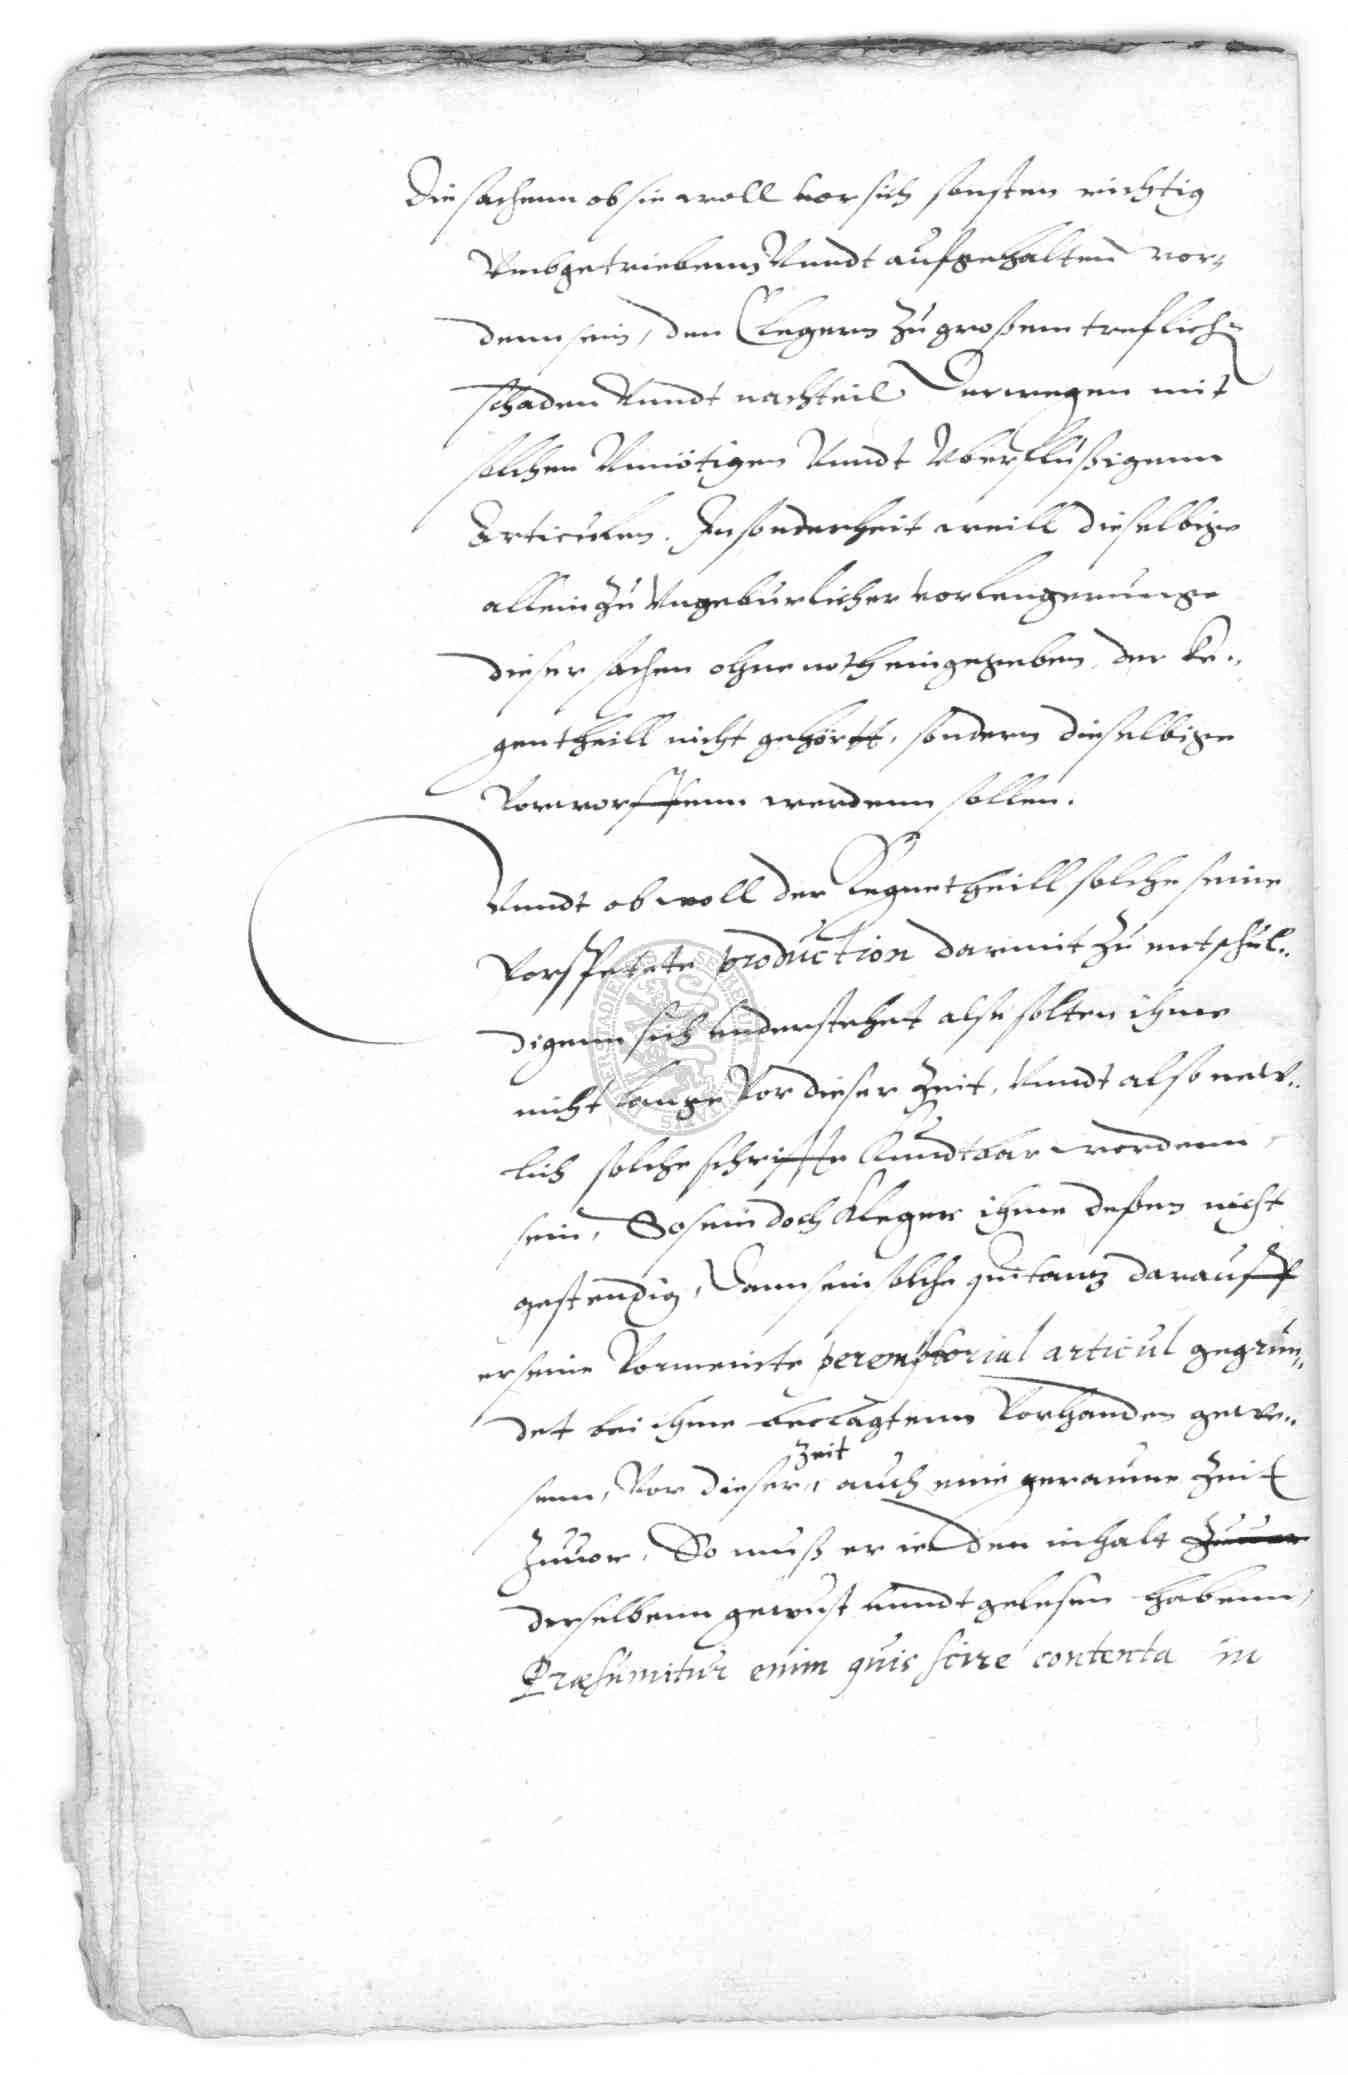 Die sachenn ob sie woll vor sich sonsten richtig
Umbgetriebenn Unndt aufgehalten wor¬
denn sein, den Clegern zu großem treflich¬
schaden Unndt nachteil Derwegen mit
solchen Unnötigen Unndt Uberflüßigenn
Articulen. Insonderheit weill dieselbige
allein zu Ungeburlicher vorlengerunge
dieser sachen ohne noth eingegeben, der Ke¬
gentheill nicht gehörtt, sondern dieselbige
Vorworffenn werdenn sollen.
Unndt obwoll der Kegnetheill solche seine
Vorspetete production darmit zu entschul¬
digenn sich understehet alse solten ihme
nicht lange Vor dieser Zeit, Unndt also new¬
lich solche schriffte Kundtbar wordenn
sein, So sein doch Kleger ihme deßen nicht
gestendig, Dann sein solche quitantz darauff
er seine Vormeinte peremptorial articul gegrun¬
det bei ihme beclagtenn Vorhanden gewe¬
senn, Vor dieser Zeit, auch eine geraume Zeit
Zuuor, So muß er ie den inhalt Zuuor
derselbenn gewust unndt gelesen habenn,
Præsumitur enim quis scire contenta in